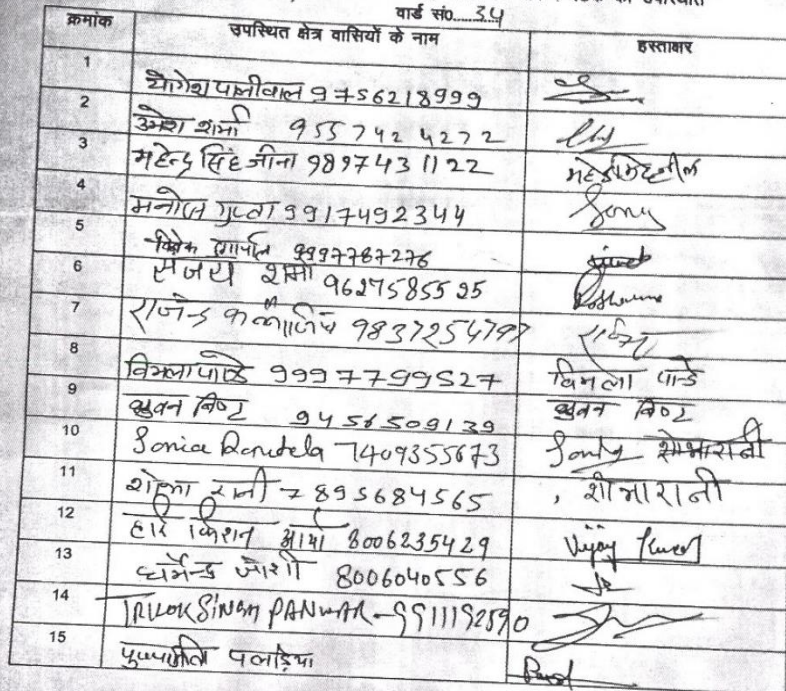 वार्ड सं0.....34
क्रमांक उपस्थित क्षेत्र वासियों के नाम हस्ताक्षर
1 योगेश पालीवाल 9756218999
2 उमेश शर्मा 9557424272
3 महेन्द्र सिंह जीना 9897431122
4 मनोज गुप्ता 9917492344 Sony
5 विवेक 9997787276
6 संजय शर्मा 9627585525
7 राजेन्द्र 9837254797
8 विमला पाण्डे 9997799527 विमला पान्डे
9 भुवन बिष्ट 9456509139 भुवन बिष्ट
10 Sonia Rautela 7409355673 शोभारानी
11 शोभा रानी 7895684565 शोभारानी
12 हरि किशन आर्या 8006235429 Vijay
13 धर्मेन्द्र जोशी 8006040556
14 TRILOK SINGH PANWAR - 9911192890
15 पलड़िया